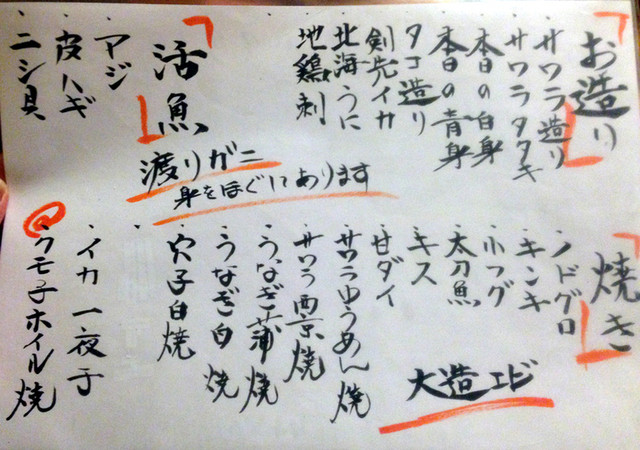 お造り
サワラ造り
サワラタタキ
本日の白身
本日の青身
タコ造り
剣先イカ
北海うに
地鶏刺
活魚
渡りガニ
身をほぐしてあります
アジ
皮ハギ
ニシ貝
焼き
ノドグロ
キンキ
小フグ
太刀魚
キス
甘ダイ
大造エビ
サワラゆうあん焼
サワラ西京焼
うなぎ蒲焼
うなぎ白焼
穴子白焼
イカ一夜干
クモ子ホイル焼